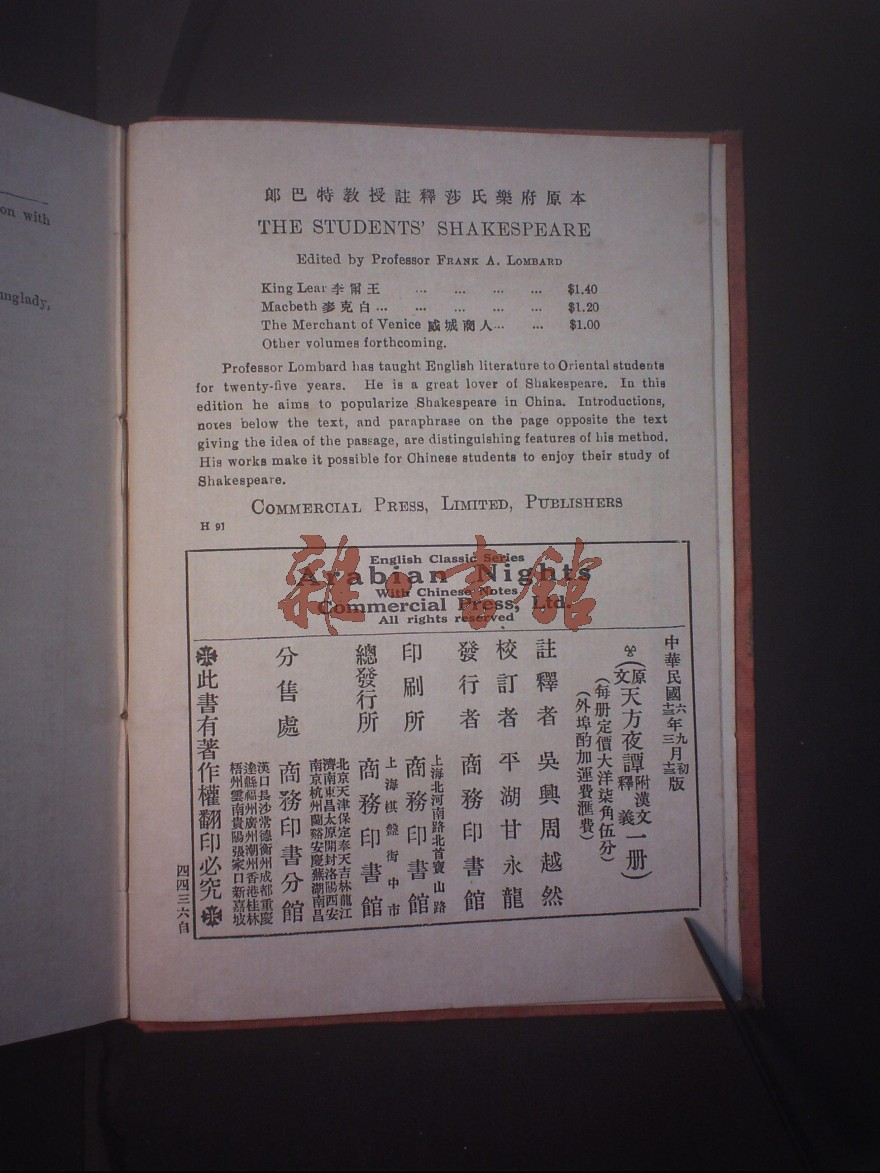 on with
anglady,
郎巴特教授註釋莎氏樂府原本
THE STUDENTS' SHAKESPEARE
Edited by Professor FRANK A. LOMBARD
King Lear 李爾王 ... ... ... ... $1.40
Macbeth 麥克白 ... ... ... ... ... $1.20
The Merchant of Venice 威城商人 ... ... $1.00
Other volumes forthcoming.
Professor Lombard has taught English literature to Oriental students
for twenty-five years. He is a great lover of Shakespeare. In this
edition he aims to popularize Shakespeare in China. Introductions,
notes below the text, and paraphrase on the page opposite the text
giving the idea of the passage, are distinguishing features of his method.
His works make it possible for Chinese students to enjoy their study of
Shakespeare.
COMMERCIAL PRESS, LIMITED, PUBLISHERS
H 91
English Classic Series
Arabian Nights
With Chinese Notes
Commercial Press, Ltd.
All rights reserved
雜·書館
中華民國六年九月初版
十二年三月
(原文天方夜譚附漢文釋義一册)
(每册定價大洋柒角伍分)
(外埠酌加運費滙費)
註釋者 吳興周越然
校訂者 平湖甘永龍
發行者 商務印書館
上海北河南路北首寶山路
印刷所 商務印書館
上海棋盤街中市
總發行所 商務印書館
北京天津保定奉天吉林龍江
濟南東昌太原開封洛陽西安
南京杭州蘭谿安慶蕪湖南昌
分售處 商務印書分館
漢口長沙常德衡州成都重慶
達縣福州廣州潮州香港桂林
梧州雲南貴陽張家口新嘉坡
此書有著作權翻印必究
四四三六自